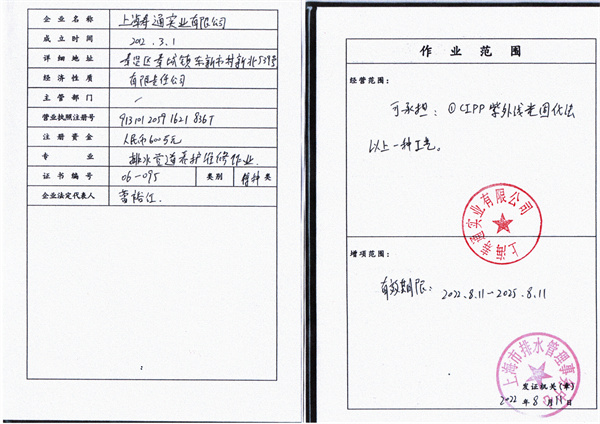 企业名称 上海 通实业有限公司
成立时间 2012.3.1
详细地址 区 城镇东新市村新北539号
经济性质 有限责任公司
主管部门 /
营业执照注册号
注册资金 人民币600万元
专业 排水管道养护维修作业
证书编号 06-095 类别 特种类
企业法定代表人 曹裕江
2
作业范围
经营范围:
可承担:①CIPP紫外线光固化法
以上一种工艺。
上海 通实业有限公司
增项范围:
有效期限:2022.8.11-2025.8.11
上海市排水管理事务中心
发证机关(章)
2022年8月11日